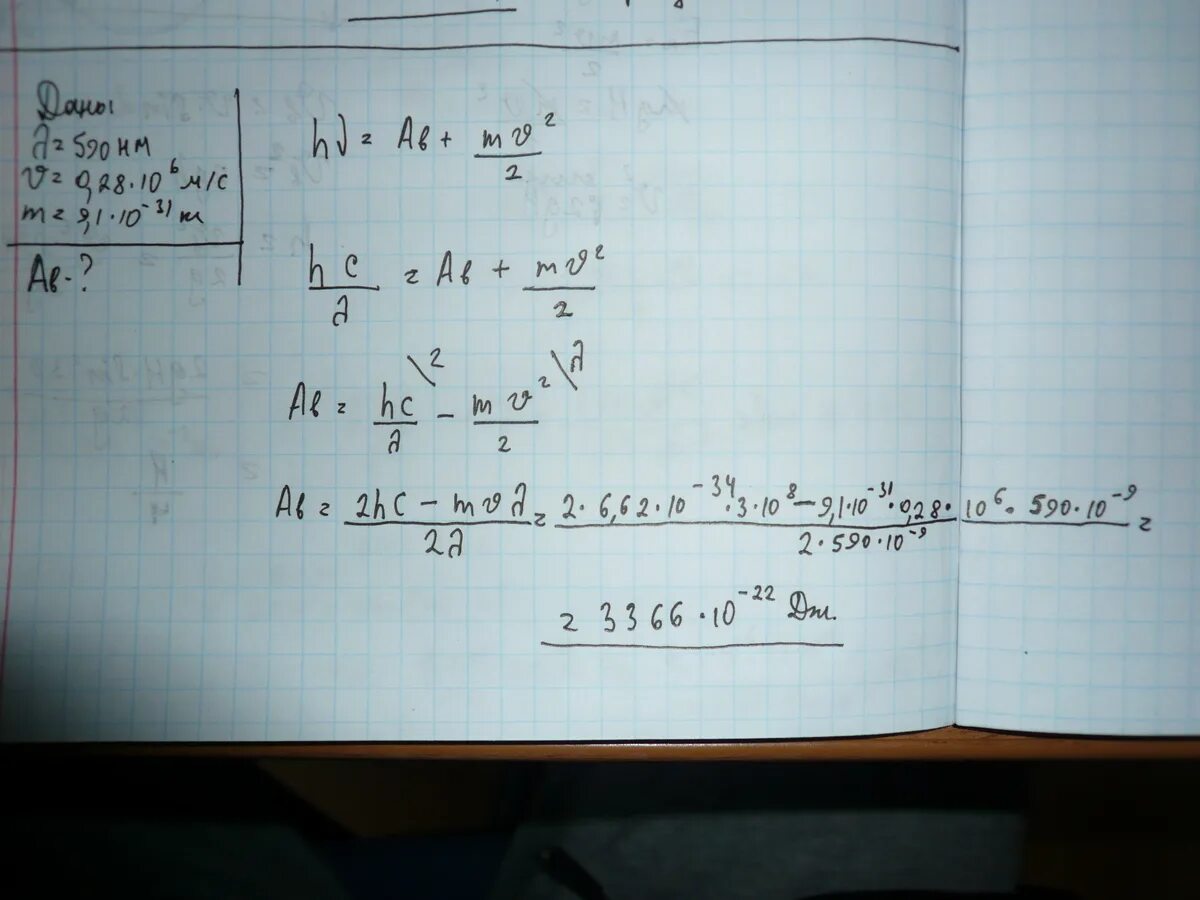 Даны
λ = 590 нм
υ = 0,28·10⁶ м/с
m = 9,1·10⁻³¹ кг
Ав - ?
hν = Ав + mυ²/2
hc/λ = Ав + mυ²/2
Ав = hc/λ \2 - mυ²/2 \λ
Ав = (2hc - mυλ)/2λ = (2·6,62·10⁻³⁴·3·10⁸ - 9,1·10⁻³¹·0,28·10⁶·590·10⁻⁹)/(2·590·10⁻⁹) =
= 3366·10⁻²² Дж.